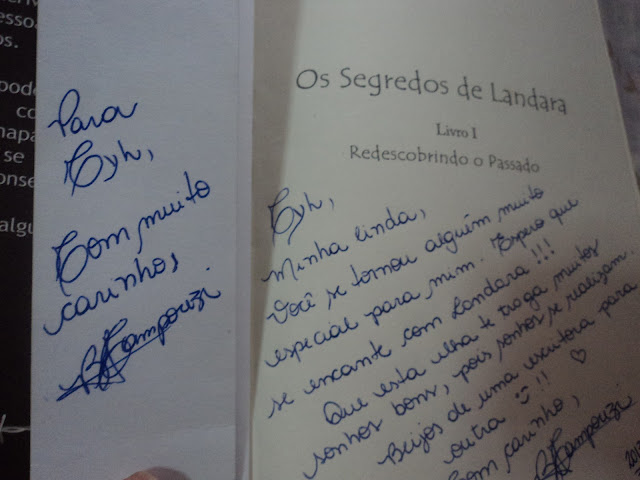 esso
os.
pode
co
mapa
se
onse
algu
Para
Tyh,
Com muito
carinho,
Os Segredos de Landara
Livro I
Redescobrindo o Passado
Tyh,
Minha linda,
Você se tornou alguém muito
especial para mim. Espero que
se encante com Landara!!!
Que esta ilha te traga muitos
sonhos bons, pois sonhos se realizam.
Beijos de uma escritora para
outra!!
Com carinho,